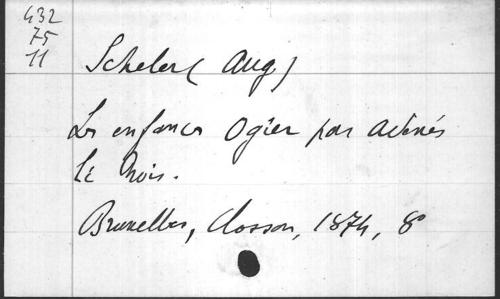 432
75
11
Scheler (Aug)
Les enfances Ogier par Adenés
li Rois.
Bruxelles, Closson, 1874, 8°